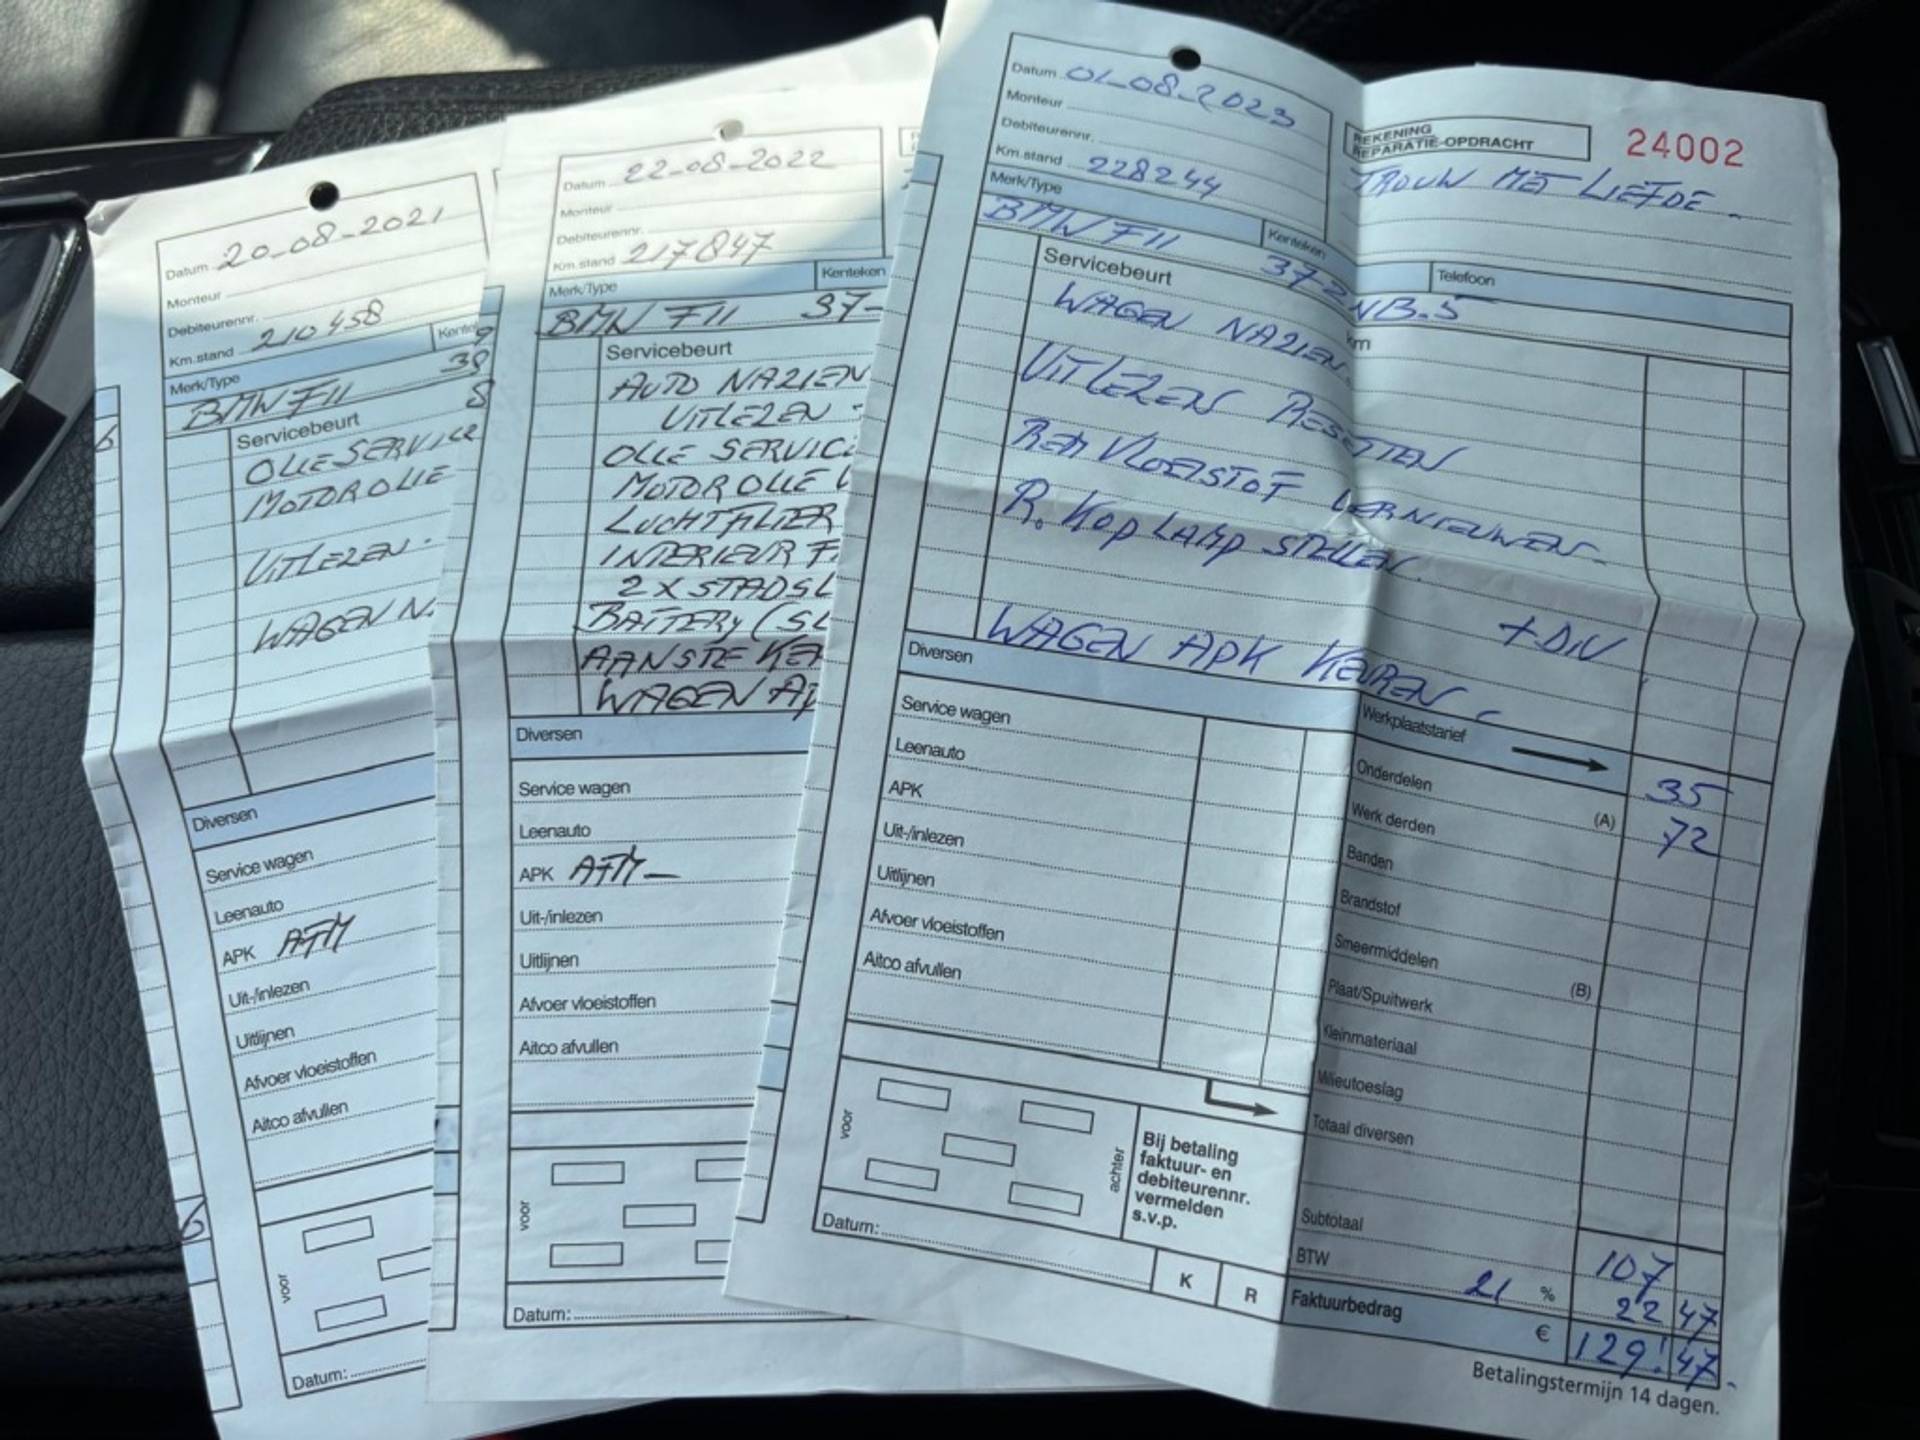 Datum 20-08-2021
Monteur
Debiteurennr.
Km.stand 210458
Merk/Type
BMW F11
Servicebeurt
OLIE SERVICE
MOTOROLIE
UITLEZEN.
WAGEN N.
Diversen
Service wagen
Leenauto
APK AFM
Uit-/inlezen
Uitlijnen
Afvoer vloeistoffen
Aitco afvullen
voor
Datum:
Datum 22-08-2022
Monteur
Debiteurennr.
Km.stand 217847
Merk/Type Kenteken
BMW F11 37-
Servicebeurt
AUTO NAZIEN
UITLEZEN -
OLIE SERVICE
MOTOROLIE
LUCHTFILTER
INTERIEUR F
2X STADSL
BATTERY (SL
AANSTEKER
WAGEN AP
Diversen
Service wagen
Leenauto
APK AFM -
Uit-/inlezen
Uitlijnen
Afvoer vloeistoffen
Aitco afvullen
voor
Datum:
Datum 01-08-2023
Monteur
Debiteurennr.
Km.stand 228244
REKENING
REPARATIE-OPDRACHT
24002
TROUW MET LIEFDE.
Merk/Type Kenteken Telefoon
BMW F11 37-ZNB.5
Servicebeurt km
WAGEN NAZIEN.
UITLEZEN RESETTEN
REM VLOEISTOF VERNIEUWEN.
R. KOPLAMP STELLEN.
+ DIV
WAGEN APK KEUREN -
Diversen
Service wagen
Leenauto
APK
Uit-/inlezen
Uitlijnen
Afvoer vloeistoffen
Aitco afvullen
Werkplaatstarief
Onderdelen (A) 35
Werk derden 72
Banden
Brandstof
Smeermiddelen (B)
Plaat/Spuitwerk
Kleinmateriaal
Milieutoeslag
Totaal diversen
Subtotaal 107
BTW 21 % 22 47
Faktuurbedrag € 129! 47
voor
achter
Bij betaling
faktuur- en
debiteurennr.
vermelden
s.v.p.
Datum:
K R
Betalingstermijn 14 dagen.